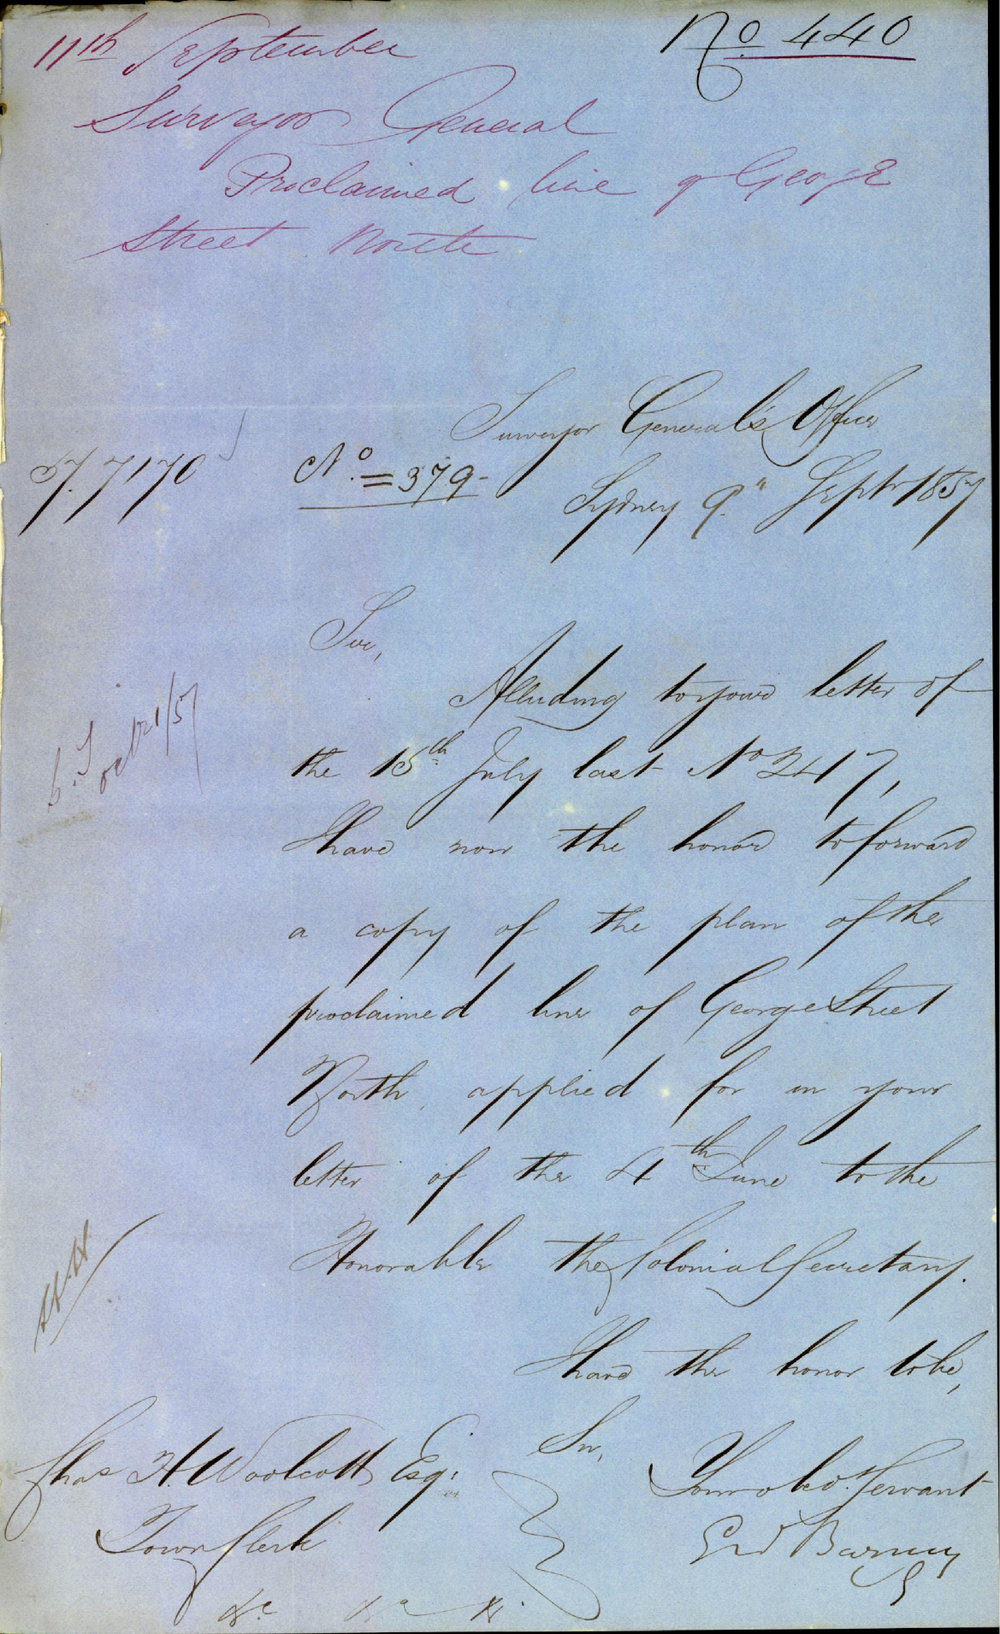 11th September
No 440
Surveyor General
Proclaimed line of George
Street North
Surveyor General's Office
57.7170
No. = 379 -
Sydney 9" Septr 1857
Sir,
Alluding to your letter of
the 15th July last No 2417,
I have now the honor to forward
a copy of the plan of the
proclaimed line of George Street
North applied for in your
letter of the 4th June to the
Honorable the Colonial Secretary.
I have the honor to be,
Sir,
Your obdt. Servant
Chas H. Woolcott Esq:
Town Clerk
&c &c &c
Octbr 1/57